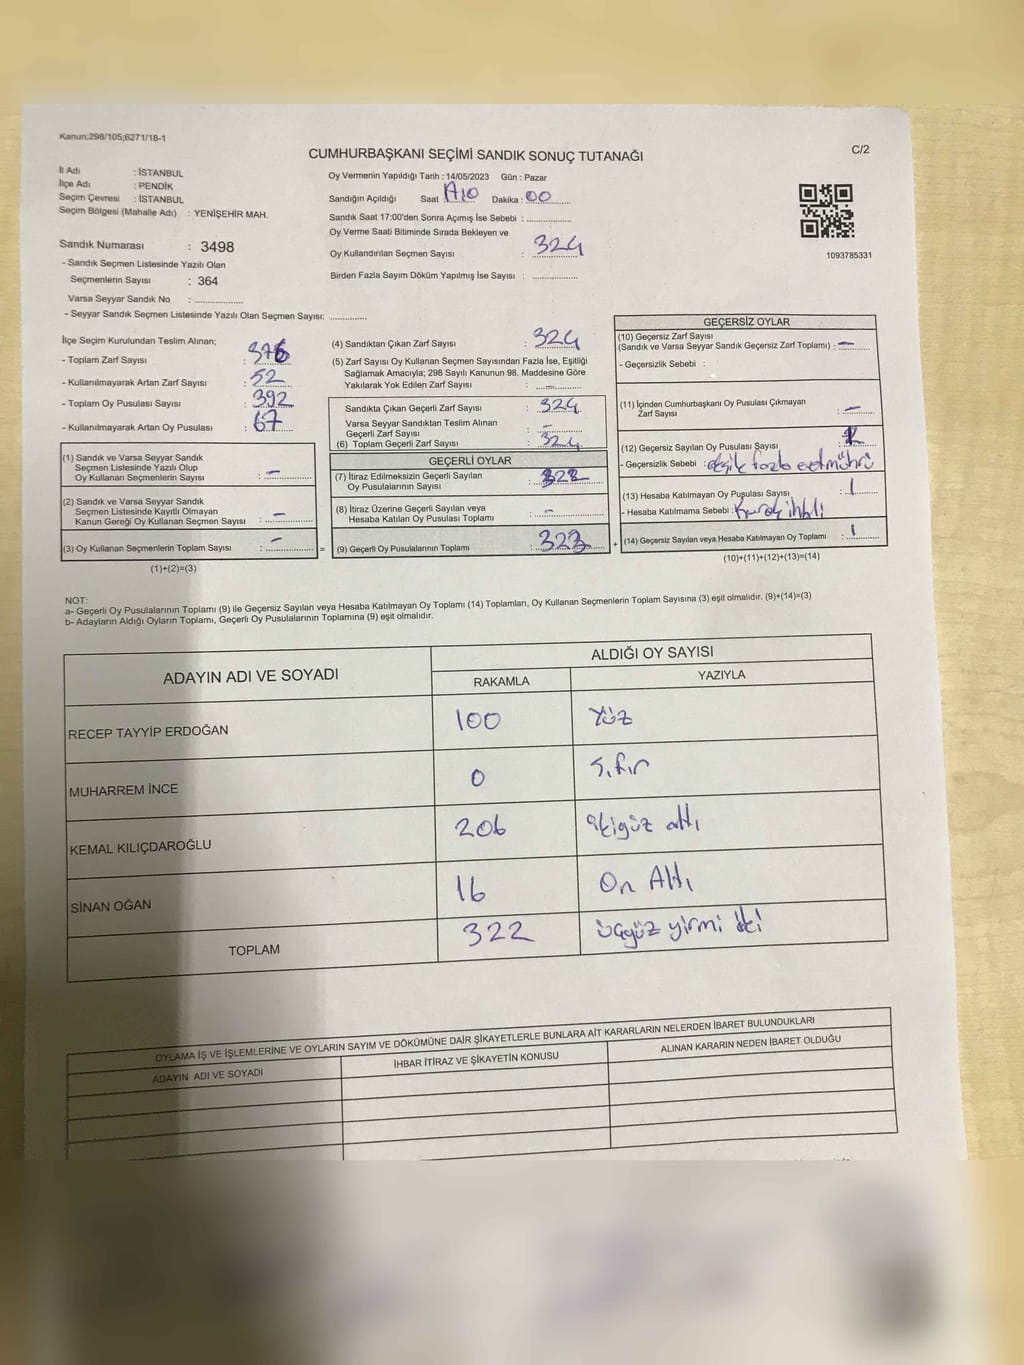 Kanun;298/105;6271/18-1
C/2
CUMHURBAŞKANI SEÇİMİ SANDIK SONUÇ TUTANAĞI
İl Adı : İSTANBUL
İlçe Adı : PENDİK
Seçim Çevresi : İSTANBUL
Seçim Bölgesi (Mahalle Adı) : YENİŞEHİR MAH.
Sandık Numarası : 3498
- Sandık Seçmen Listesinde Yazılı Olan
Seçmenlerin Sayısı : 364
Varsa Seyyar Sandık No :
- Seyyar Sandık Seçmen Listesinde Yazılı Olan Seçmen Sayısı:
Oy Vermenin Yapıldığı Tarih : 14/05/2023 Gün : Pazar
Sandığın Açıldığı Saat Dakika : 00
Sandık Saat 17:00'den Sonra Açımış İse Sebebi :
Oy Verme Saati Bitiminde Sırada Bekleyen ve
Oy Kullandırılan Seçmen Sayısı : 324
Birden Fazla Sayım Döküm Yapılmış İse Sayısı :
1093785331
İlçe Seçim Kurulundan Teslim Alınan;
- Toplam Zarf Sayısı : 376
- Kullanılmayarak Artan Zarf Sayısı : 52
- Toplam Oy Pusulası Sayısı : 392
- Kullanılmayarak Artan Oy Pusulası : 67
(1) Sandık ve Varsa Seyyar Sandık
Seçmen Listesinde Yazılı Olup
Oy Kullanan Seçmenlerin Sayısı : -
(2) Sandık ve Varsa Seyyar Sandık
Seçmen Listesinde Kayıtlı Olmayan
Kanun Gereği Oy Kullanan Seçmen Sayısı : -
(3) Oy Kullanan Seçmenlerin Toplam Sayısı : - =
(1)+(2)=(3)
(4) Sandıktan Çıkan Zarf Sayısı : 324
(5) Zarf Sayısı Oy Kullanan Seçmen Sayısından Fazla İse, Eşitliği
Sağlamak Amacıyla; 298 Sayılı Kanunun 98. Maddesine Göre
Yakılarak Yok Edilen Zarf Sayısı : -
Sandıkta Çıkan Geçerli Zarf Sayısı : 324
Varsa Seyyar Sandıktan Teslim Alınan
Geçerli Zarf Sayısı : -
(6) Toplam Geçerli Zarf Sayısı : 324
GEÇERLİ OYLAR
(7) İtiraz Edilmeksizin Geçerli Sayılan
Oy Pusulalarının Sayısı : 322
(8) İtiraz Üzerine Geçerli Sayılan veya
Hesaba Katılan Oy Pusulası Toplamı : -
(9) Geçerli Oy Pusulalarının Toplamı : +
GEÇERSİZ OYLAR
(10) Geçersiz Zarf Sayısı
(Sandık ve Varsa Seyyar Sandık Geçersiz Zarf Toplamı) : -
- Geçersizlik Sebebi :
(11) İçinden Cumhurbaşkanı Oy Pusulası Çıkmayan
Zarf Sayısı : -
(12) Geçersiz Sayılan Oy Pusulası Sayısı :
- Geçersizlik Sebebi :
(13) Hesaba Katılmayan Oy Pusulası Sayısı : 1
- Hesaba Katılmama Sebebi :
(14) Geçersiz Sayılan veya Hesaba Katılmayan Oy Toplamı : 1
(10)+(11)+(12)+(13)=(14)
NOT:
a- Geçerli Oy Pusulalarının Toplamı (9) ile Geçersiz Sayılan veya Hesaba Katılmayan Oy Toplamı (14) Toplamları, Oy Kullanan Seçmenlerin Toplam Sayısına (3) eşit olmalıdır. (9)+(14)=(3)
b- Adayların Aldığı Oyların Toplamı, Geçerli Oy Pusulalarının Toplamına (9) eşit olmalıdır.
ADAYIN ADI VE SOYADI
ALDIĞI OY SAYISI
RAKAMLA YAZIYLA
RECEP TAYYİP ERDOĞAN 100 Yüz
MUHARREM İNCE 0 Sıfır
KEMAL KILIÇDAROĞLU 206 ikiyüz altı
SİNAN OĞAN 16 On Altı
TOPLAM 322 üçyüz yirmi iki
OYLAMA İŞ VE İŞLEMLERİNE VE OYLARIN SAYIM VE DÖKÜMÜNE DAİR ŞİKAYETLERLE BUNLARA AİT KARARLARIN NELERDEN İBARET BULUNDUKLARI
ADAYIN ADI VE SOYADI İHBAR İTİRAZ VE ŞİKAYETİN KONUSU ALINAN KARARIN NEDEN İBARET OLDUĞU